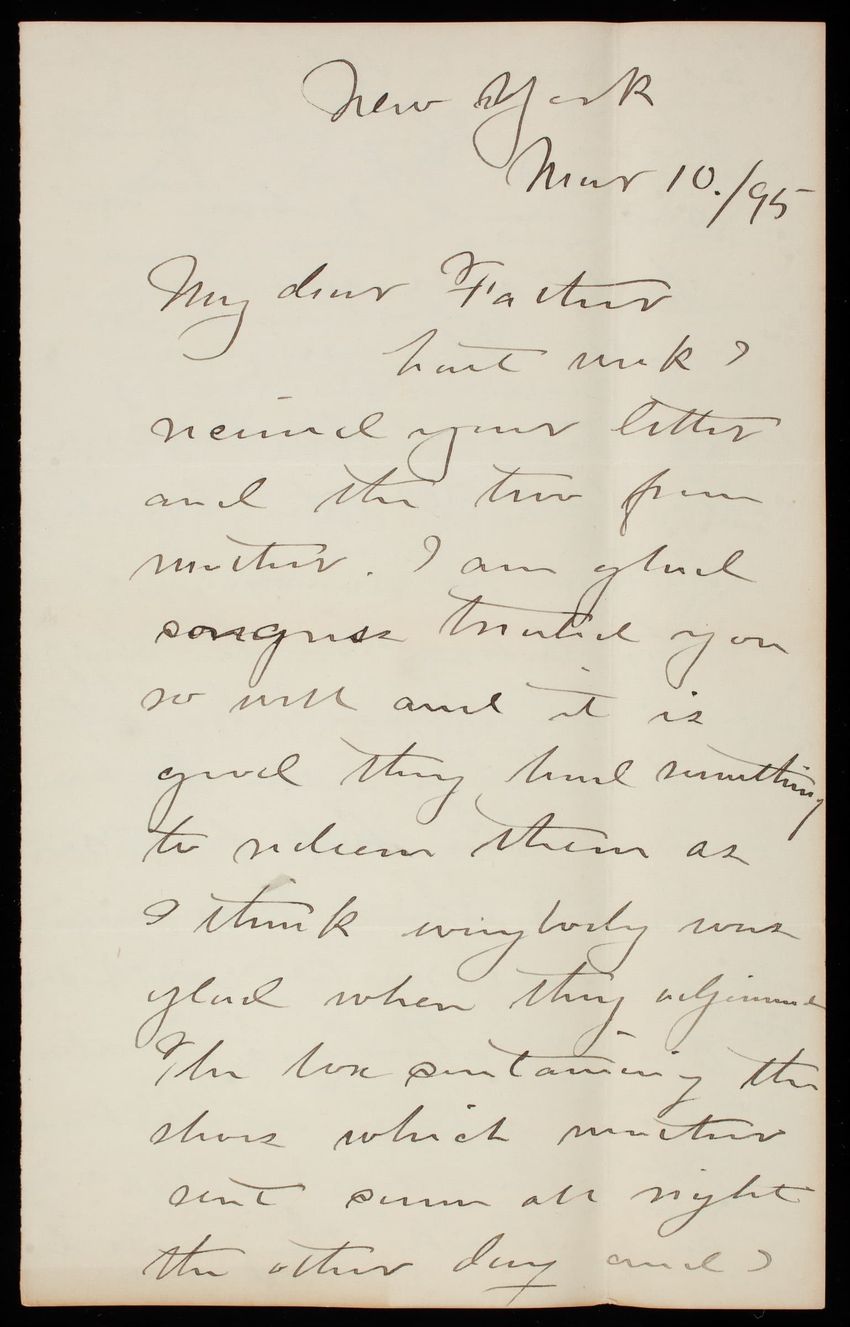 New York
Mar 10./95
My dear Father
Last week I
received your letter
and the two from
mother. I am glad
congress treated you
so well and it is
good they had something
to redeem them as
I think everybody was
glad when they adjourned
The box containing the
shoes which mother
sent came all right
the other day and I